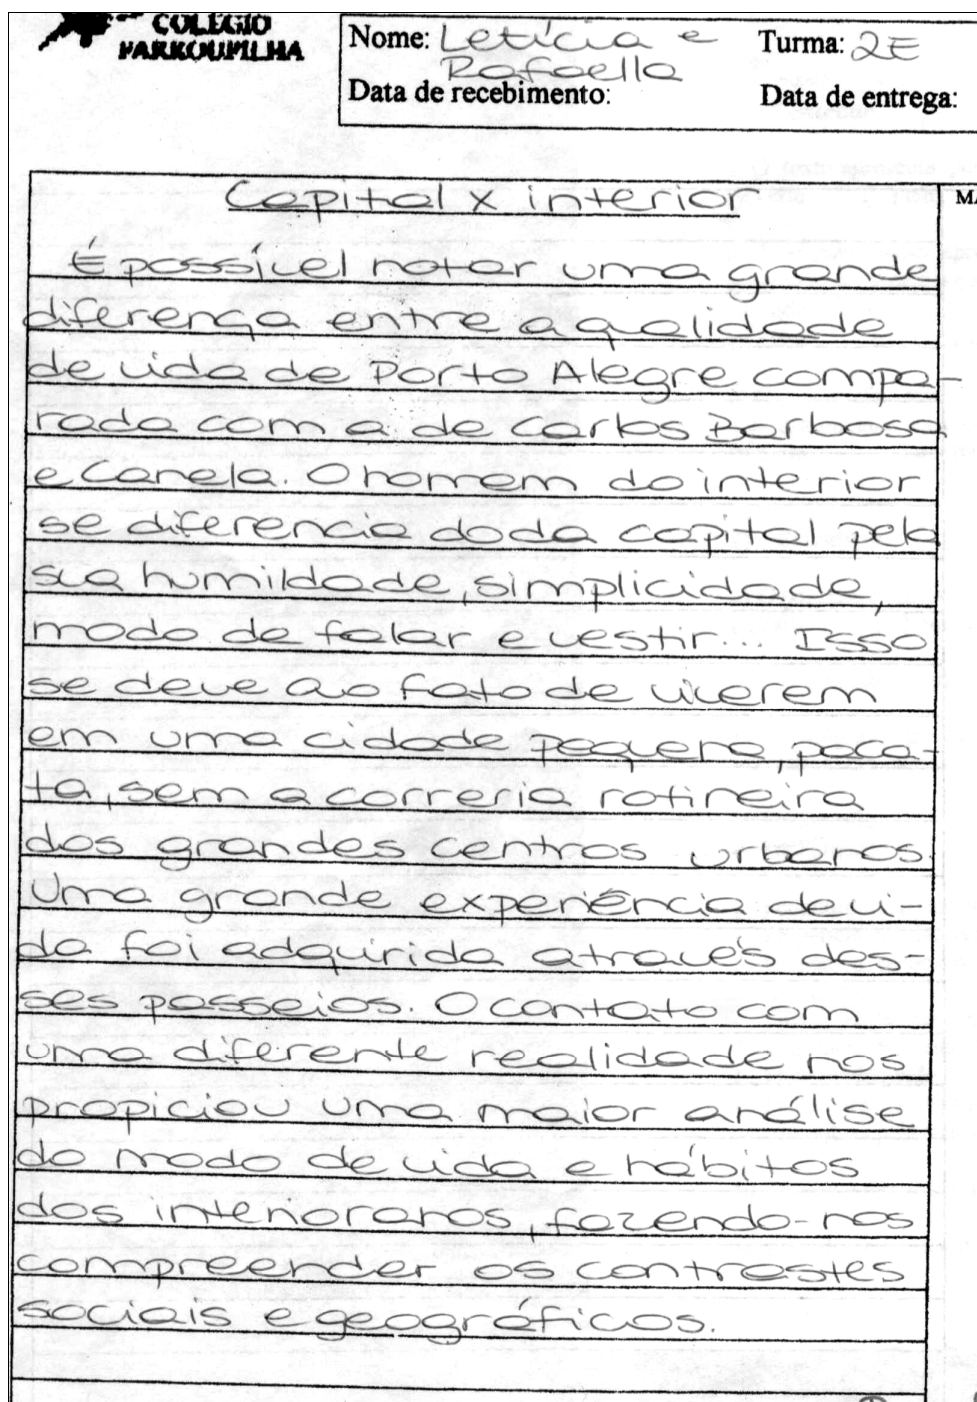 COLÉGIO
FARROUPILHA
Nome: Letícia e Turma: 2E
Rafaella
Data de recebimento: Data de entrega:
Capital x interior
MA
É possível notar uma grande
diferença entre a qualidade
de vida de Porto Alegre compa-
rada com a de Carlos Barbosa
e Canela. O homem do interior
se diferencia do da capital pela
sua humildade, simplicidade,
modo de falar e vestir... Isso
se deve ao fato de viverem
em uma cidade pequena, paca-
ta, sem a correria rotineira
dos grandes centros urbanos.
Uma grande experiência de vi-
da foi adquirida através des-
ses passeios. O contato com
uma diferente realidade nos
propiciou uma maior análise
do modo de vida e hábitos
dos interioranos, fazendo-nos
compreender os contrastes
sociais e geográficos.